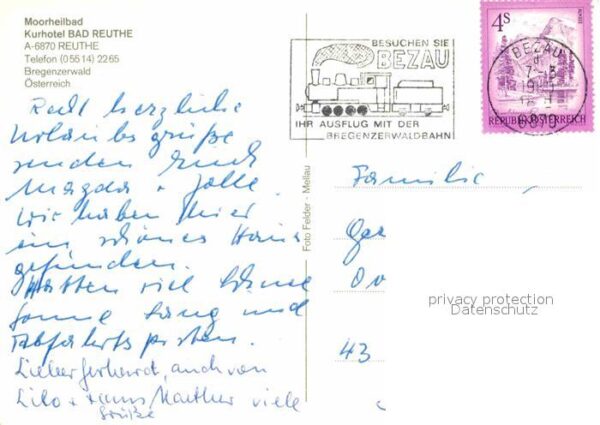 Moorheilbad
Kurhotel BAD REUTHE
A-6870 REUTHE
Telefon (05514) 2265
Bregenzerwald
Österreich
Recht herzliche
Urlaubsgrüße
senden Euch
Magda +
Wir haben hier
ein schönes Haus
gefunden.
Hatten viel Schnee
Sonne Lang und
Abfahrtspisten.
Lieber Gerhard, auch von
Lilo + Hans viele
Grüße
Foto Felder - Mellau
BESUCHEN SIE
BEZAU
IHR AUSFLUG MIT DER
BREGENZERWALDBAHN
4S
BEZAU
6870
REPUBLIK ÖSTERREICH
Familie
Ger
Do
43
privacy protection
Datenschutz